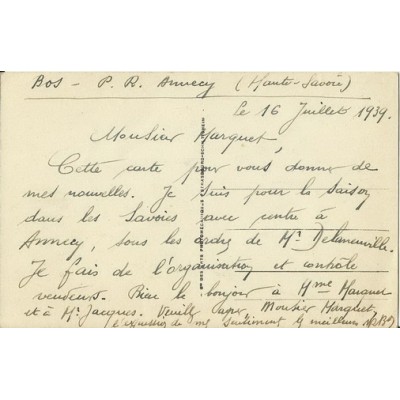 Bos - P. R. Annecy (Haute-Savoie)
le 16 Juillet 1939.
Monsieur Marquet,
Cette carte pour vous donner de
mes nouvelles. Je suis pour la saison
dans les Savoies avec centre à
Annecy, sous les ordre de Mr
Je fais de l'organisation et contrôle
vendeurs. Bien le bonjour à Mme
et à Mr. Jacques. Veuillez Monsieur Marquet,
l'expression de mes sentiments les meilleurs